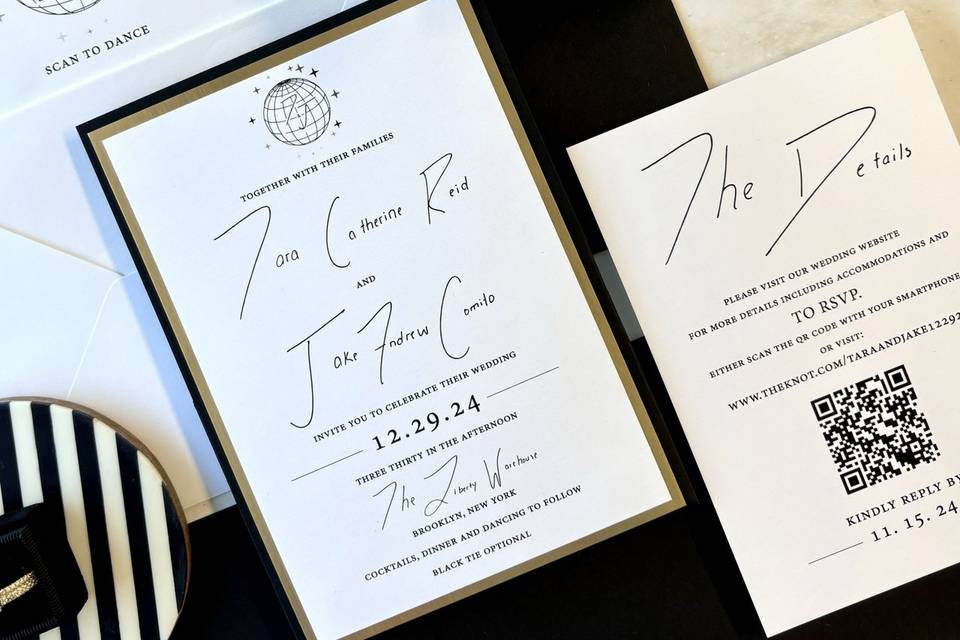 SCAN TO DANCE
TOGETHER WITH THEIR FAMILIES
Tara Catherine Reid
AND
Jake Andrew Comito
INVITE YOU TO CELEBRATE THEIR WEDDING
12.29.24
THREE THIRTY IN THE AFTERNOON
The Liberty Warehouse
BROOKLYN, NEW YORK
COCKTAILS, DINNER AND DANCING TO FOLLOW
BLACK TIE OPTIONAL
The Details
PLEASE VISIT OUR WEDDING WEBSITE
FOR MORE DETAILS INCLUDING ACCOMMODATIONS AND
TO RSVP.
EITHER SCAN THE QR CODE WITH YOUR SMARTPHONE
OR VISIT:
WWW.THEKNOT.COM/TARAANDJAKE12292
KINDLY REPLY BY
11. 15. 24